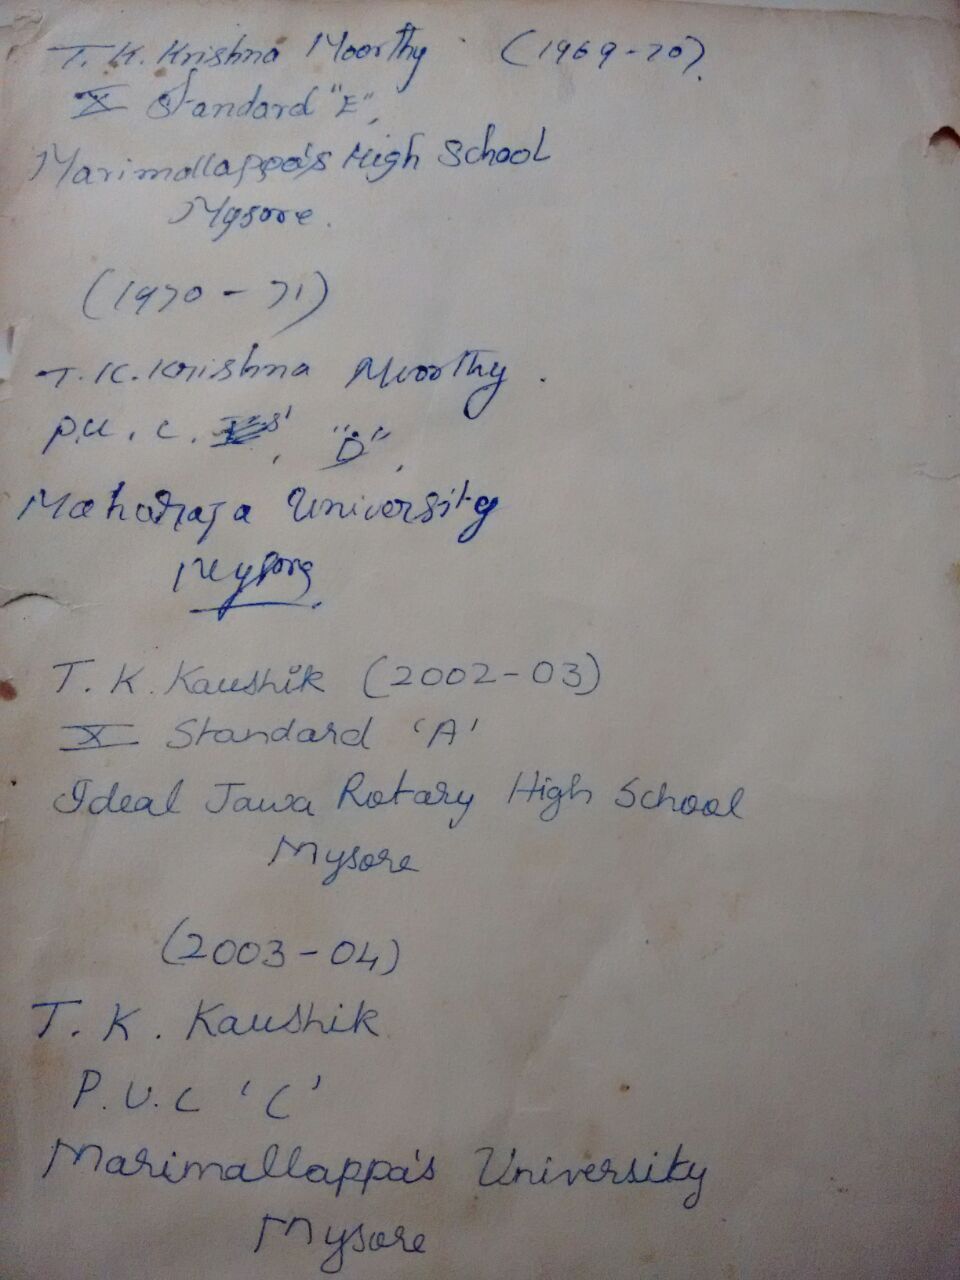 T. K. Krishna Moorthy (1969-70).
X Standard "E",
Marimallappa's High School
Mysore.
(1970 - 71)
T. K. Krishna Moorthy.
P.U.C. "D",
Maharaja University
Mysore.
T. K. Kaushik (2002-03)
X Standard 'A'
Ideal Jawa Rotary High School
Mysore
(2003-04)
T. K. Kaushik
P.U.C 'C'
Marimallappa's University
Mysore